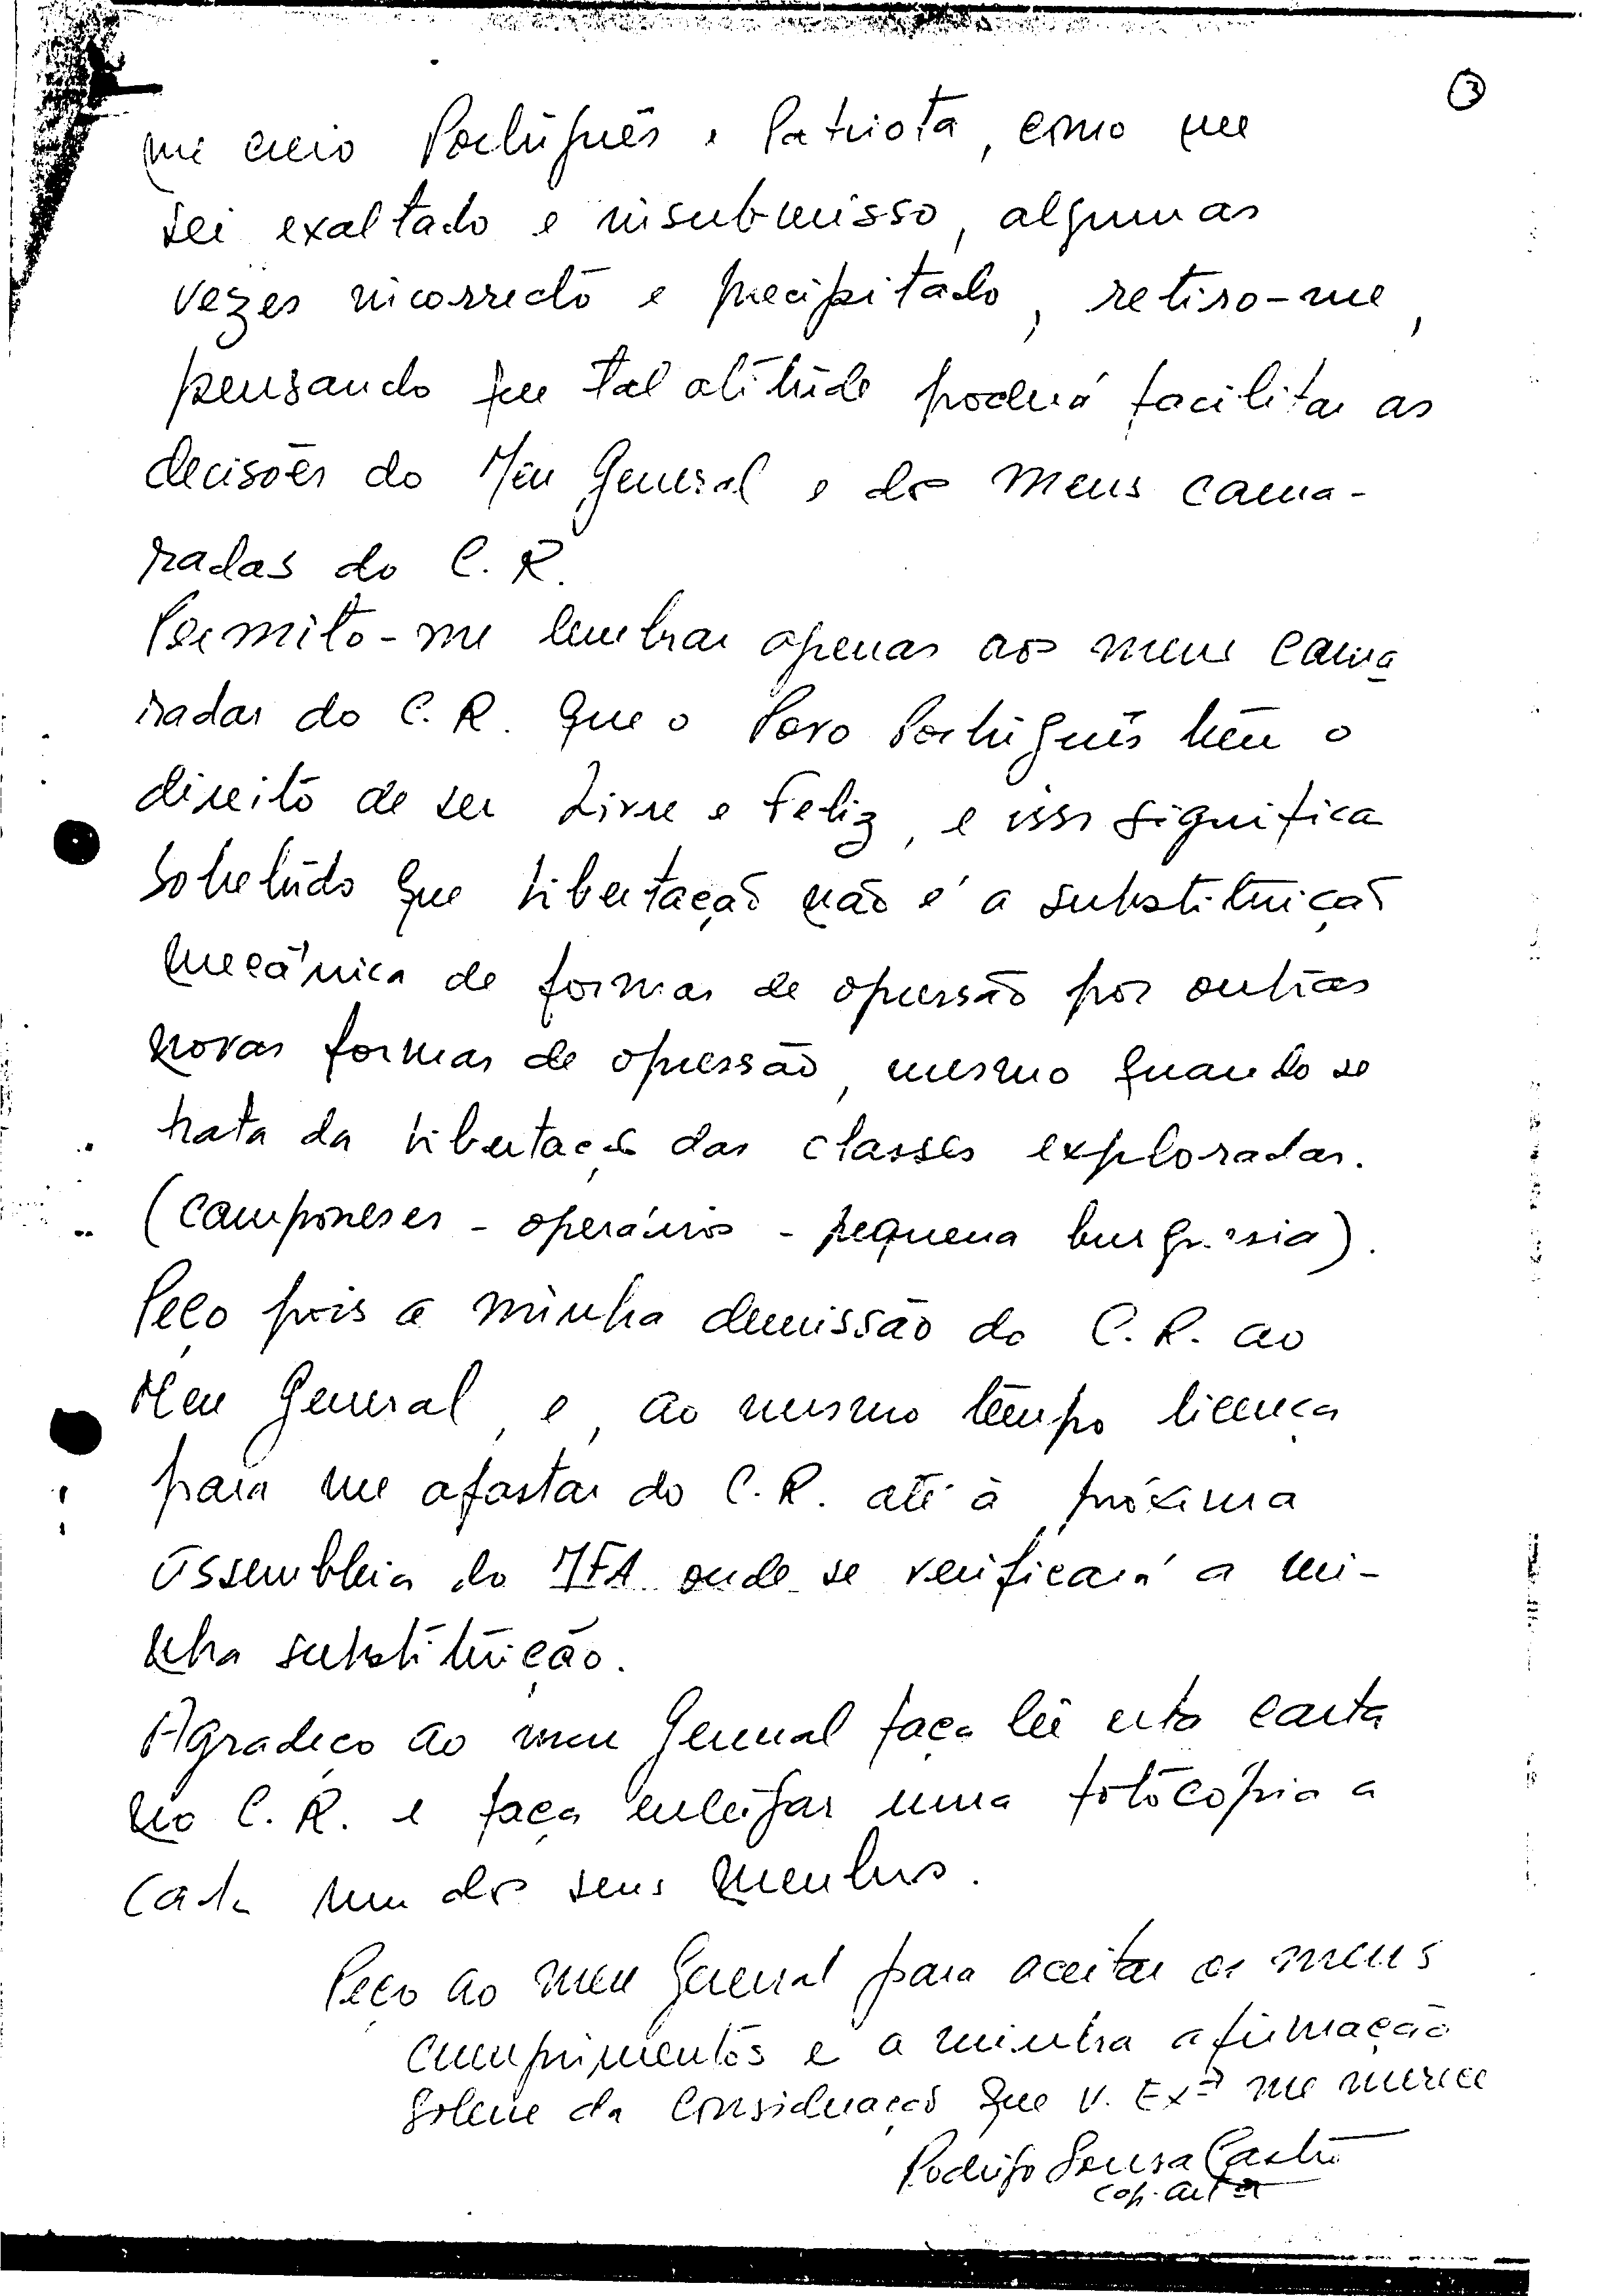 3
me creio Português e Patriota, como me
sei exaltado e insubmisso, algumas
vezes incorrecto e precipitado, retiro-me,
pensando que tal atitude poderá facilitar as
decisões do Meu General e dos meus cama-
radas do C. R.
Permito-me lembrar apenas aos meus cama
radas do C. R. que o Povo Português tem o
direito de ser Livre e Feliz, e isso significa
sobretudo que libertação não é a substituição
mecânica de formas de opressão por outras
novas formas de opressão, mesmo quando se
trata da libertação das classes exploradas.
(camponeses - operários - pequena burguesia).
Peço pois a minha demissão do C. R. ao
Meu General, e, ao mesmo tempo licença
para me afastar do C. R. até à próxima
Assembleia do MFA onde se verificará a mi-
nha substituição.
Agradeço ao meu General faça ler esta carta
no C. R. e faça entregar uma fotocópia a
cada um dos seus membros.
Peço ao meu General para aceitar os meus
cumprimentos e a minha afirmação
solene da consideração que V. Exª me merece
Rodrigo Sousa Castro
cap. artª